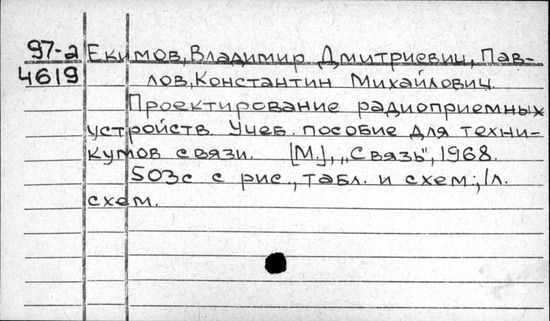 97-2 Екимов, Владимир Дмитриевич, Пав-
4619 лов, Константин Михайлович.
Проектирование радиоприемных
устройств. Учеб. пособие для техни-
кумов связи. [М.], „Связь", 1968.
503с с рис., табл. и схем.; 1л.
схем.